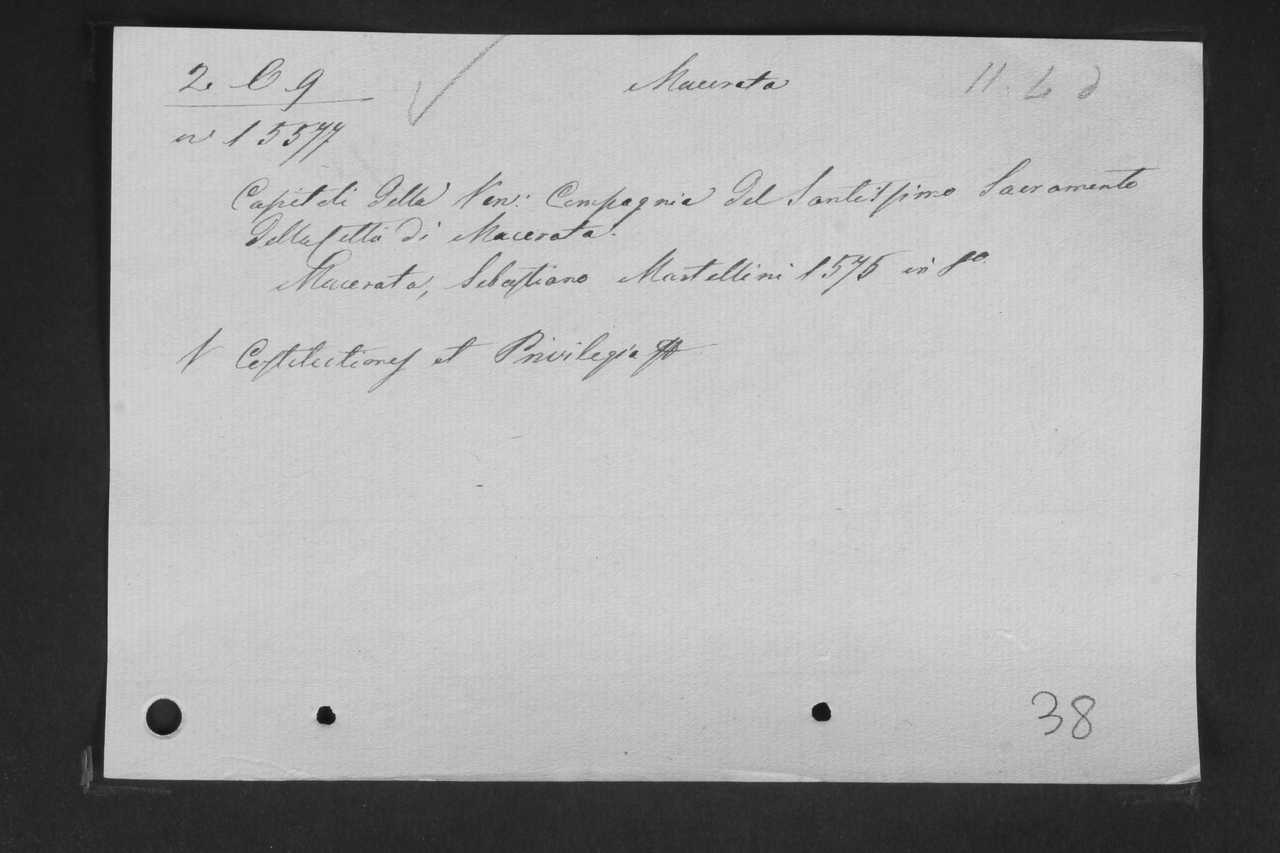 2. C 9 Macerata 11. L d
n° 15577
Capitoli della Ven: Compagnia del Santissimo Sacramento
della Città di Macerata.
Macerata, Sebastiano Martellini 1575 in 8°
V Constitutiones et Privilegia
38